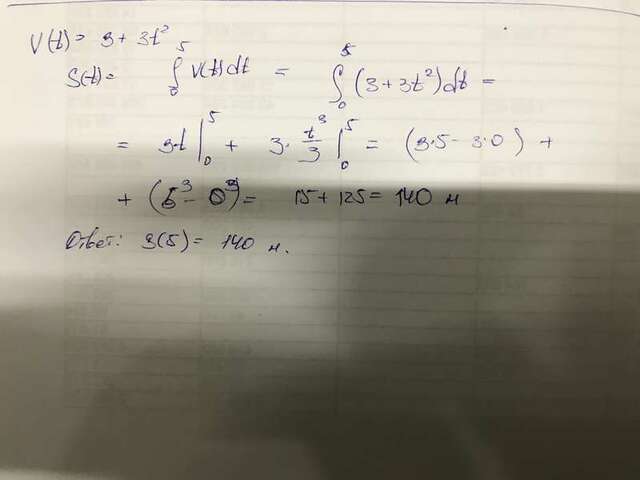 V(t) = 3 + 3t²
S(t) = ∫₀⁵ V(t)dt = ∫₀⁵ (3 + 3t²)dt =
= 3·t |₀⁵ + 3 · t³/3 |₀⁵ = (3·5 - 3·0) +
+ (5³ - 0³) = 15 + 125 = 140 м
Ответ: S(5) = 140 м.